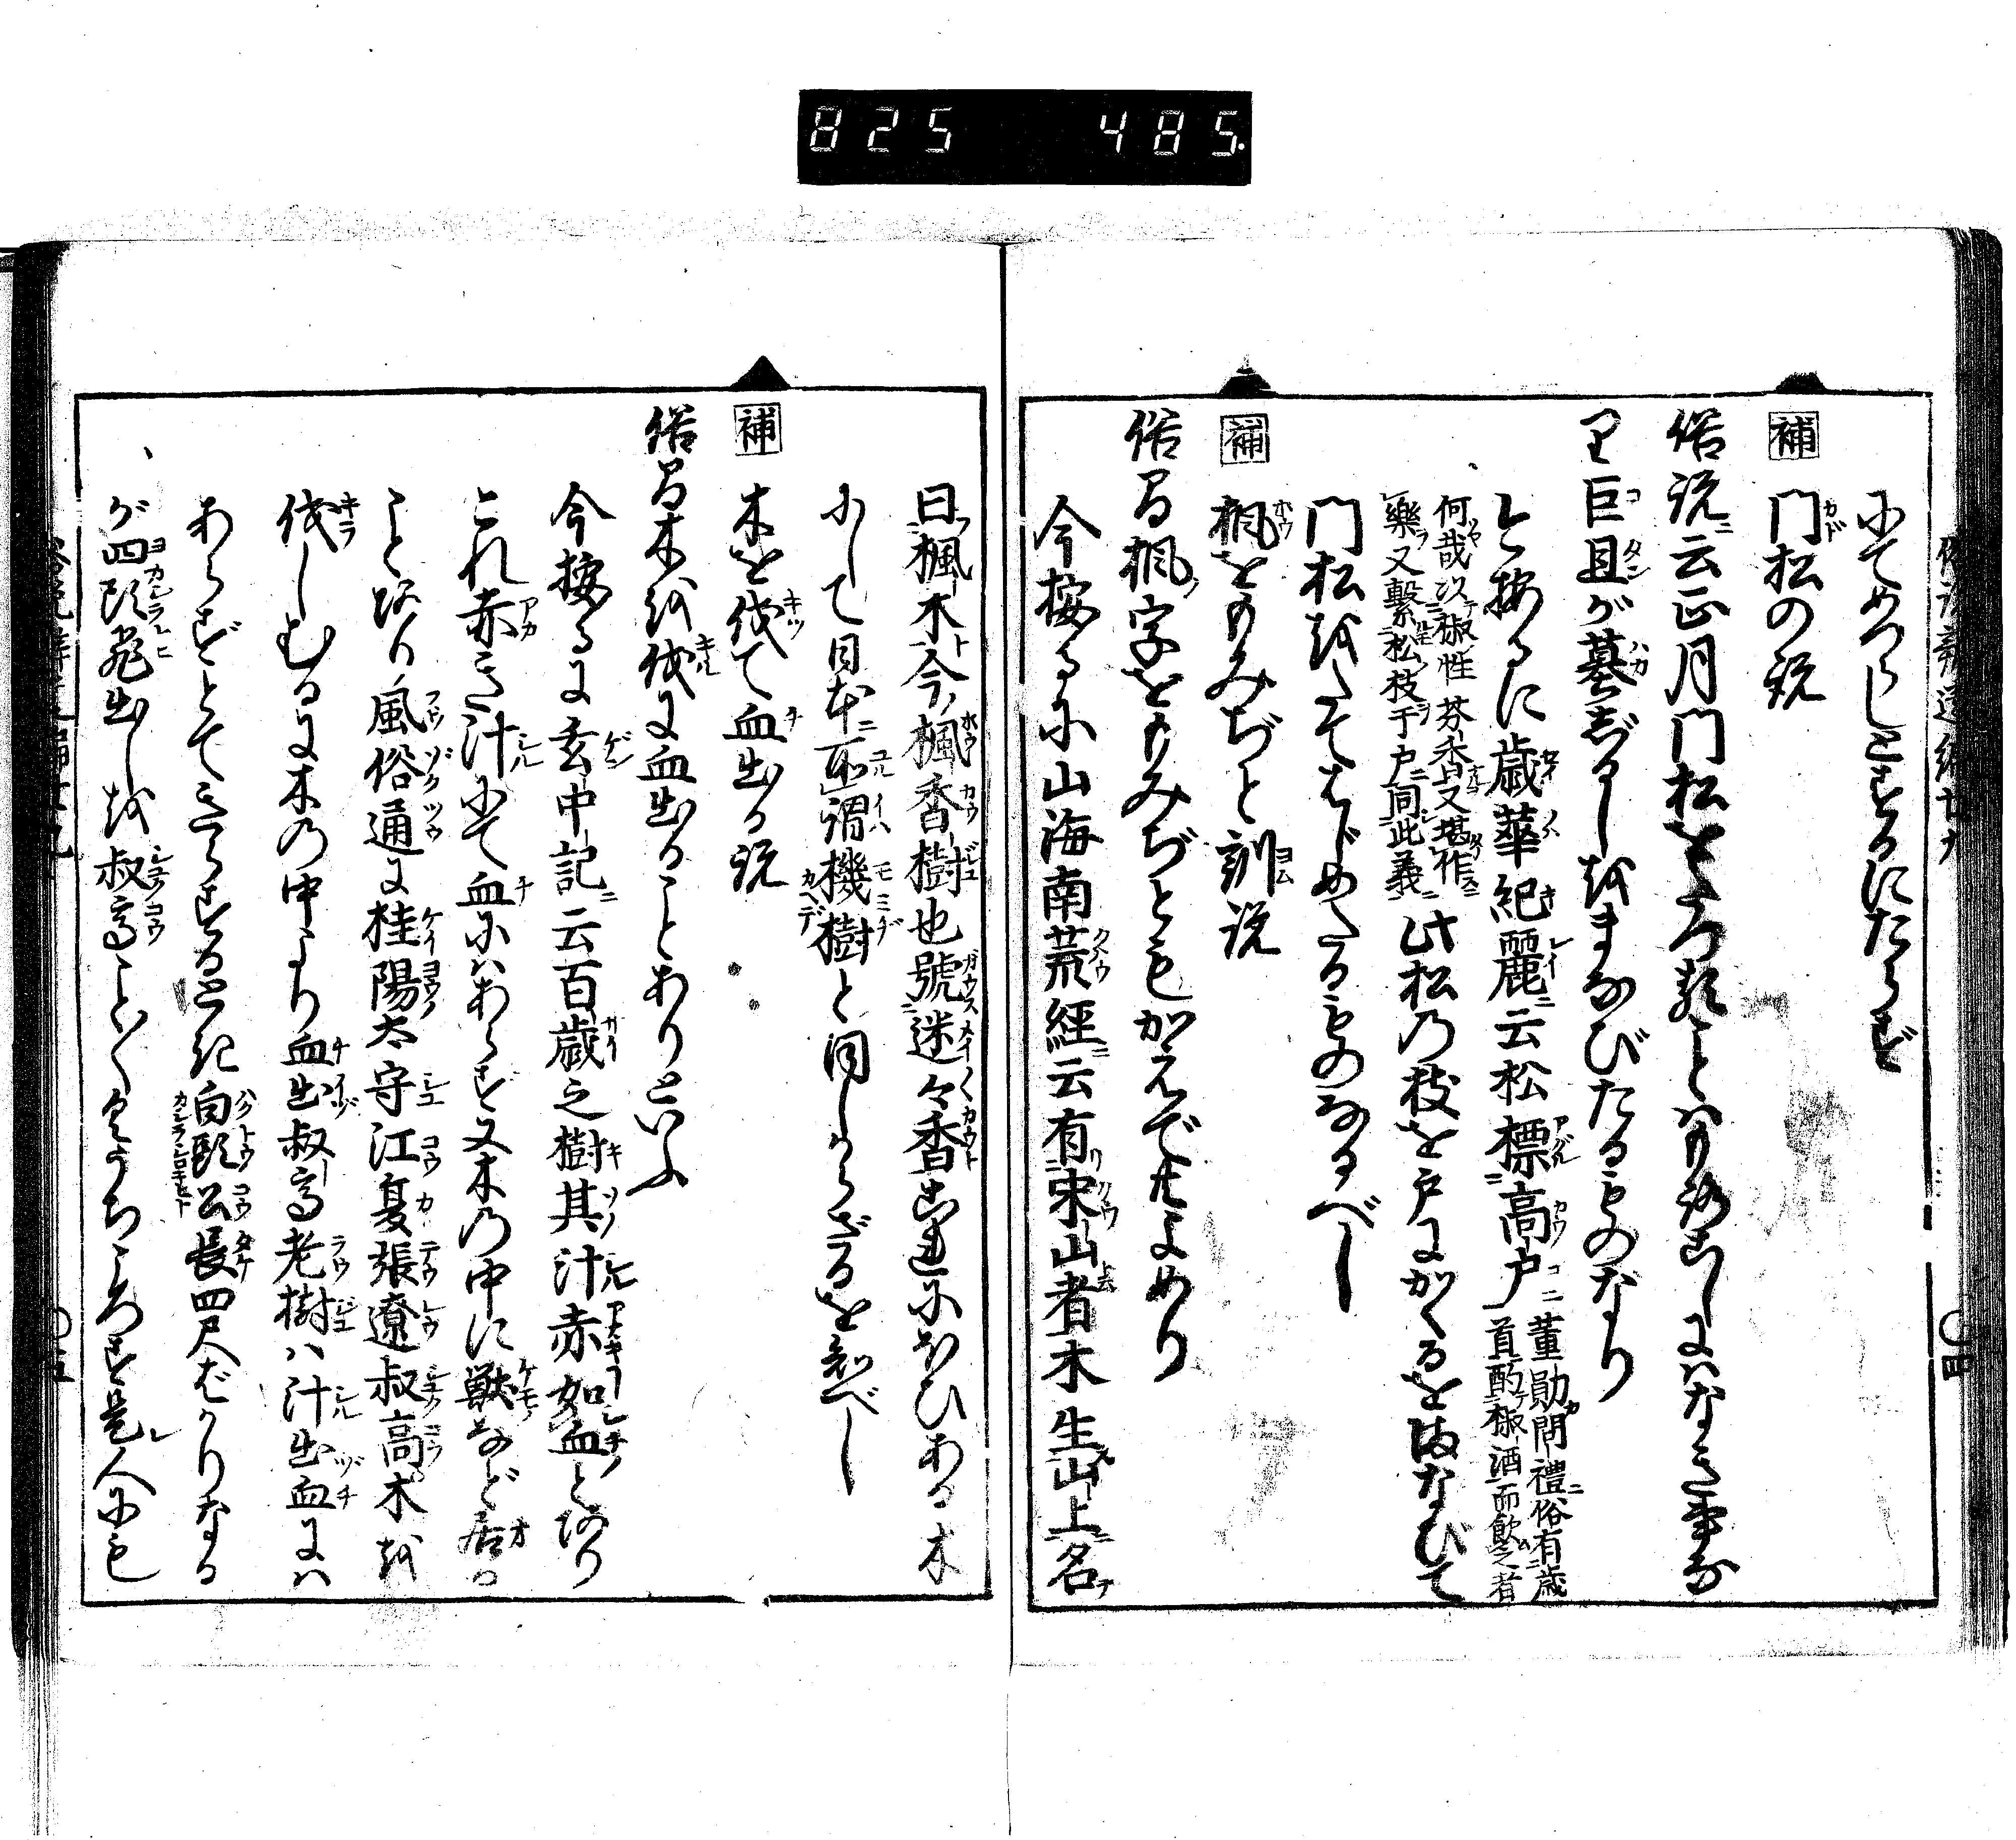 825 485
にてめづらしとするにたらず
補 門松の説
俗説ニ云正月門松をたつることはもろこしになき事な
り巨旦が墓じるしをまなびたるものなり
今按るに歳華紀麗ニ云松標高戸
董勛問禮俗有歳
首酌椒酒而飲之者
何哉以椒性芬香又堪作
藥又繫松枝于戸同此義
此松の枝を戸にかくるをまなびて
門松をたてはじめたるものなるべし
補 楓をもみぢと訓説
俗る楓字をもみぢともかえでともよめり
今按るに山海南荒經云有宋山者木生山上名
曰楓木今楓香樹也號迷々香これにほひある木
にして日本所謂機樹と同じからざるを知べし
補 木を伐て血出る説
俗る木を伐に血出ることありといふ
今按るに玄中記ニ云百歳之樹其汁赤如血とあり
これ赤き汁にて血にはあらず又木の中に獸など居る
ことあり風俗通に桂陽太守江夏張遼叔高木を
伐しむるに木の中より血出叔高老樹は汁出血には
あらずとてきらするとき白頭公長四尺ばかりなる
が四頭飛出しを叔高ことごとくうちころす是人にも